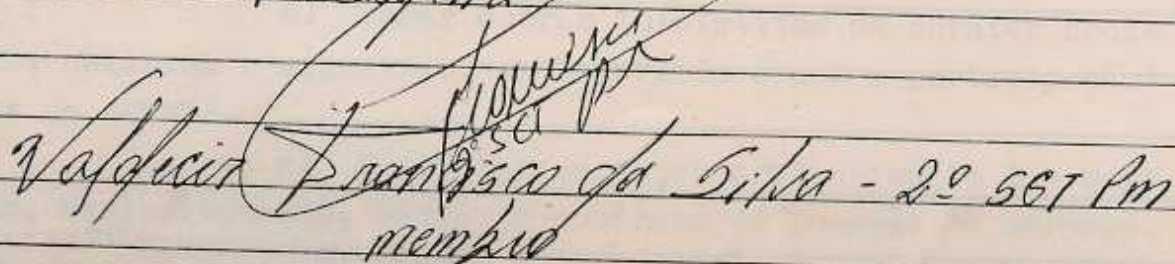 2º SGT PM
Valdecir Francisco da Silva - 2º SGT Pm
membro